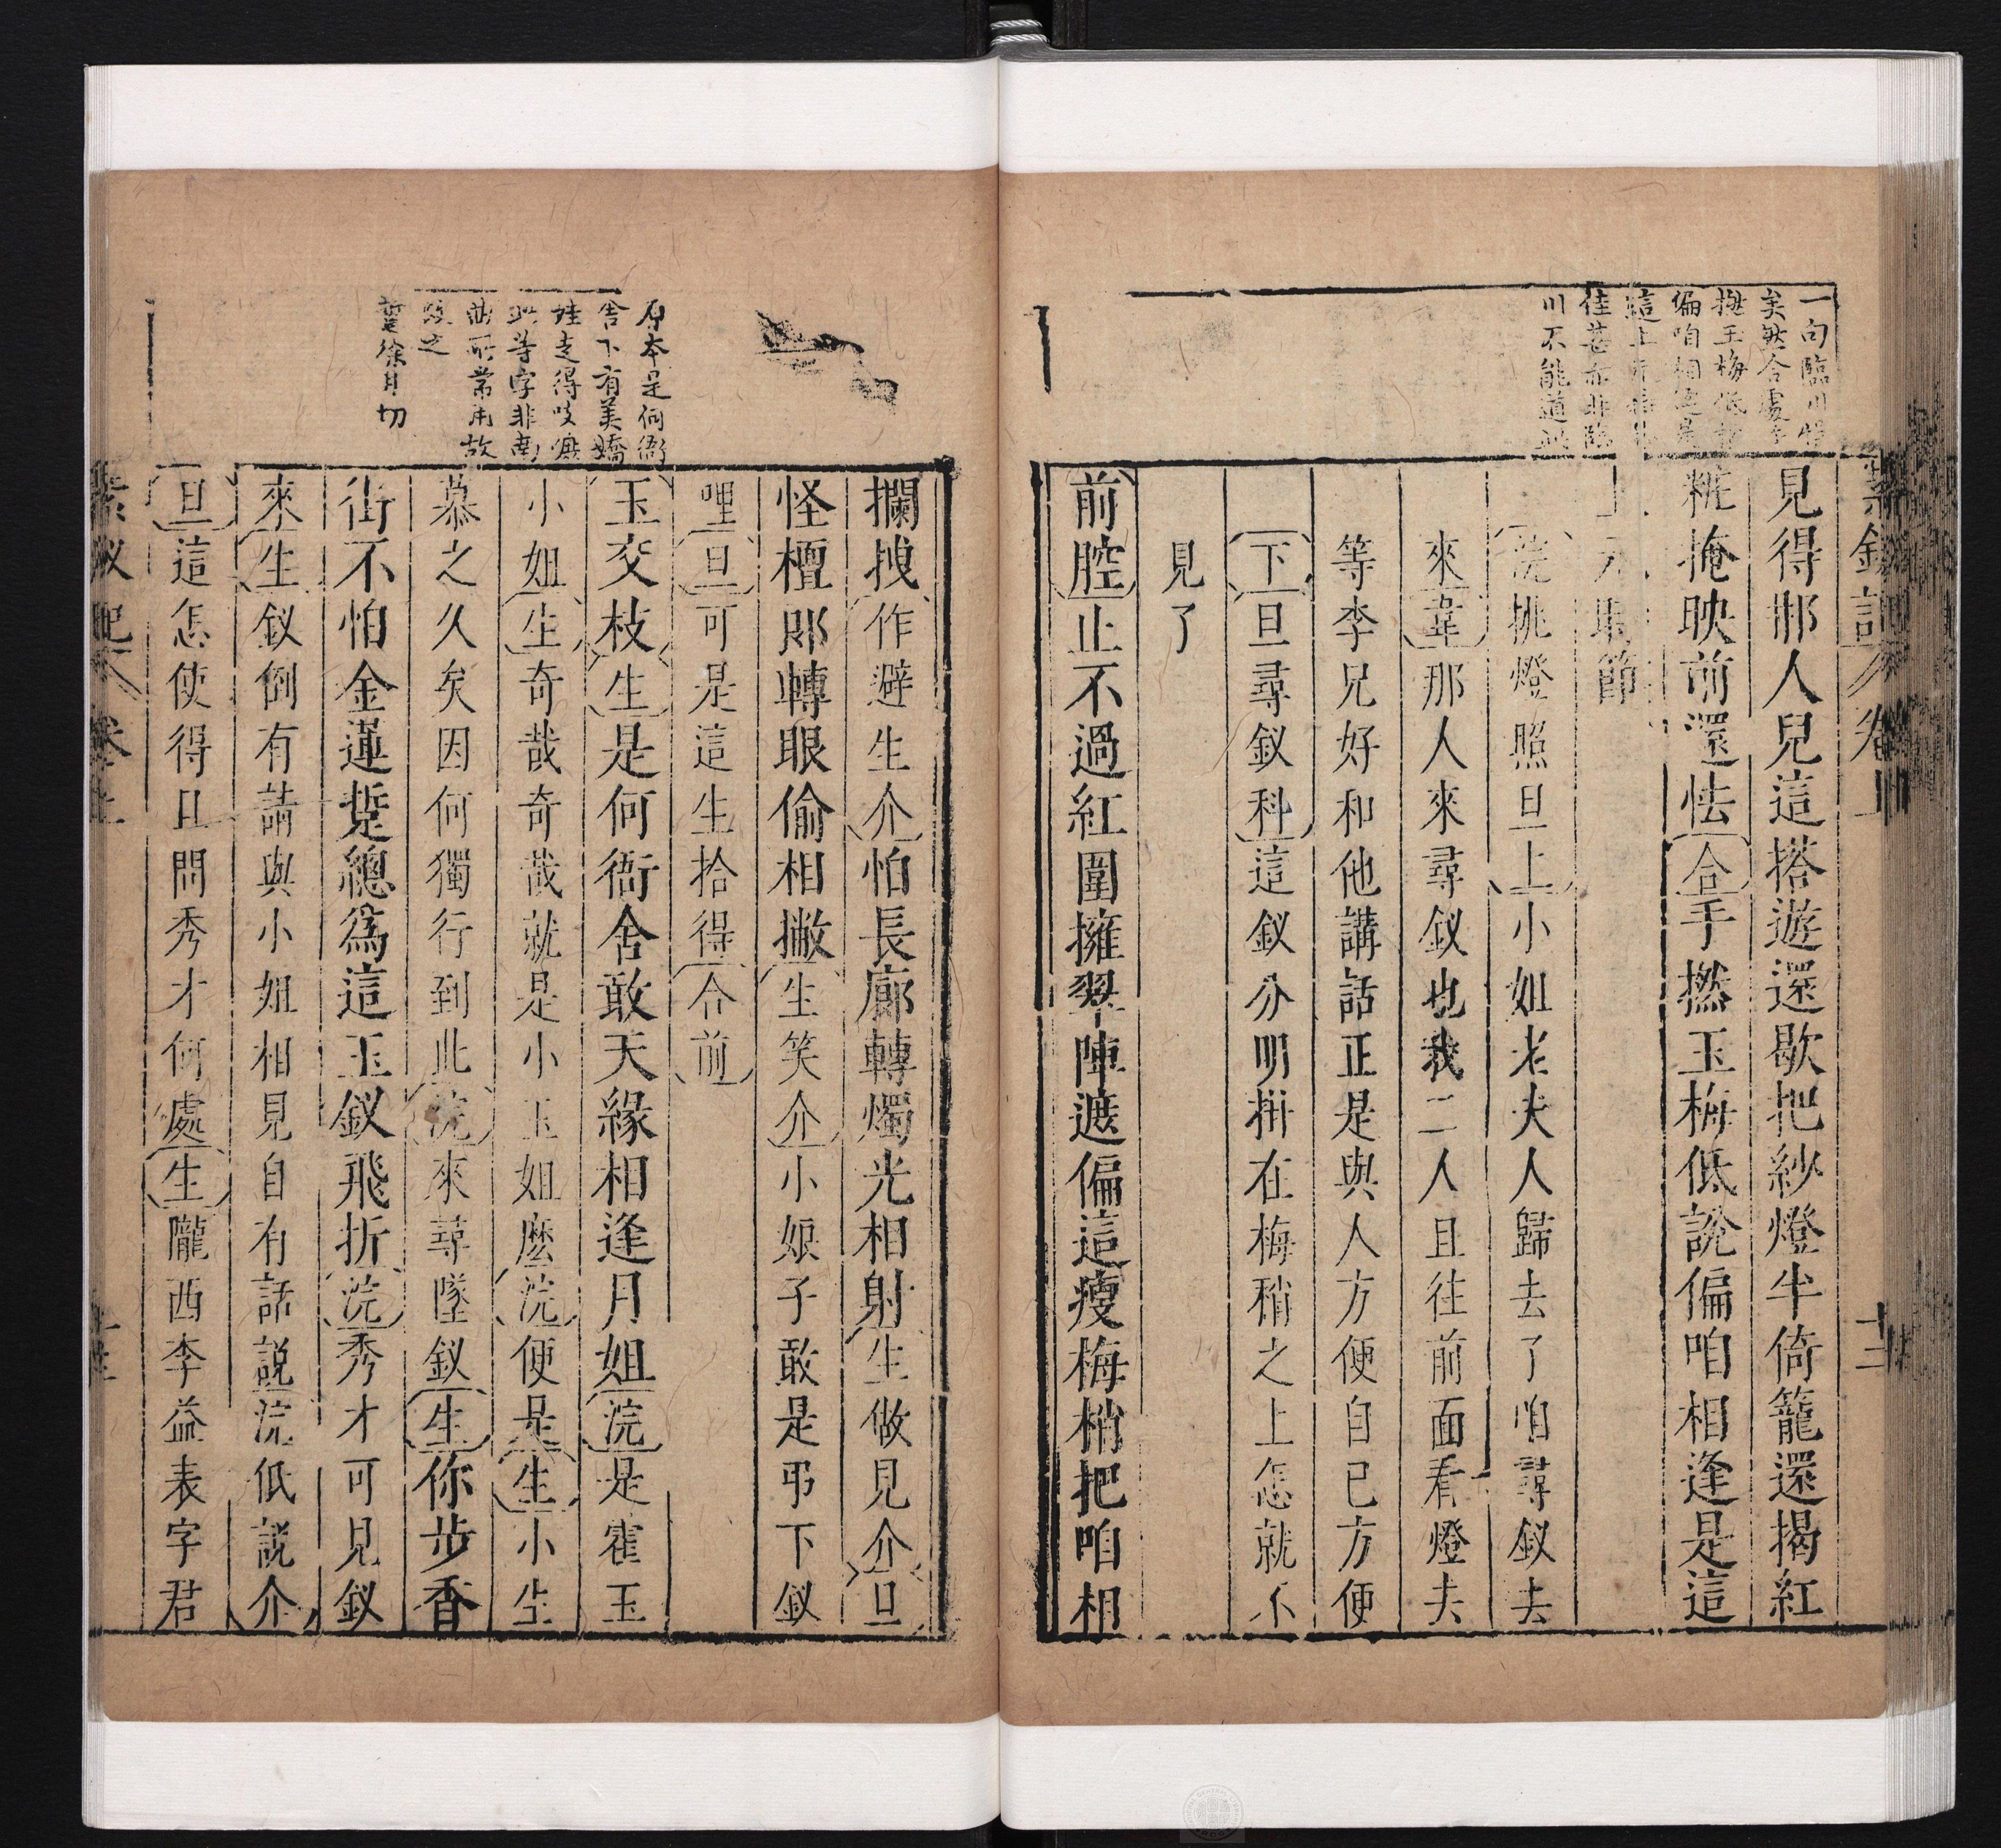 紫釵記 卷上 十三
一句臨川
矣然合處手
撚玉梅低說
偏咱相逢是
這上元
佳甚亦非臨
川不能道此
見得那人兒這搭遊還歇把紗燈半倚籠還揭紅
粧掩映前還怯合手撚玉梅低說偏咱相逢是這
上元時節
浣挑燈照旦上小姐老夫人歸去了咱尋釵去
來韋那人來尋釵也我二人且往前面看燈去
等李兄好和他講話正是與人方便自已方便
下旦尋釵科這釵分明拼在梅稍之上怎就不
見了
前腔止不過紅圍擁翠陣遮偏這瘦梅梢把咱相
原本是何衙
舍下有美嬌
娃走得吱
此等字非南
曲所常用故
改之
踅徐月切
攔拽作避生介怕長廊轉燭光相射生做見介旦
怪檀郎轉眼偷相撇生笑介小娘子敢是弔下釵
哩旦可是這生拾得介合前
玉交枝生是何衙舍敢天緣相逢月姐浣是霍玉
小姐生奇哉奇哉就是小玉姐麼浣便是生小生
慕之久矣因何獨行到此浣來尋墜釵生你步香
街不怕金蓮踅總為這玉釵飛折浣秀才可見釵
來生釵倒有請與小姐相見自有話說浣低說介
旦這怎使得旦問秀才何處生隴西李益表字君
紫釵記 卷上